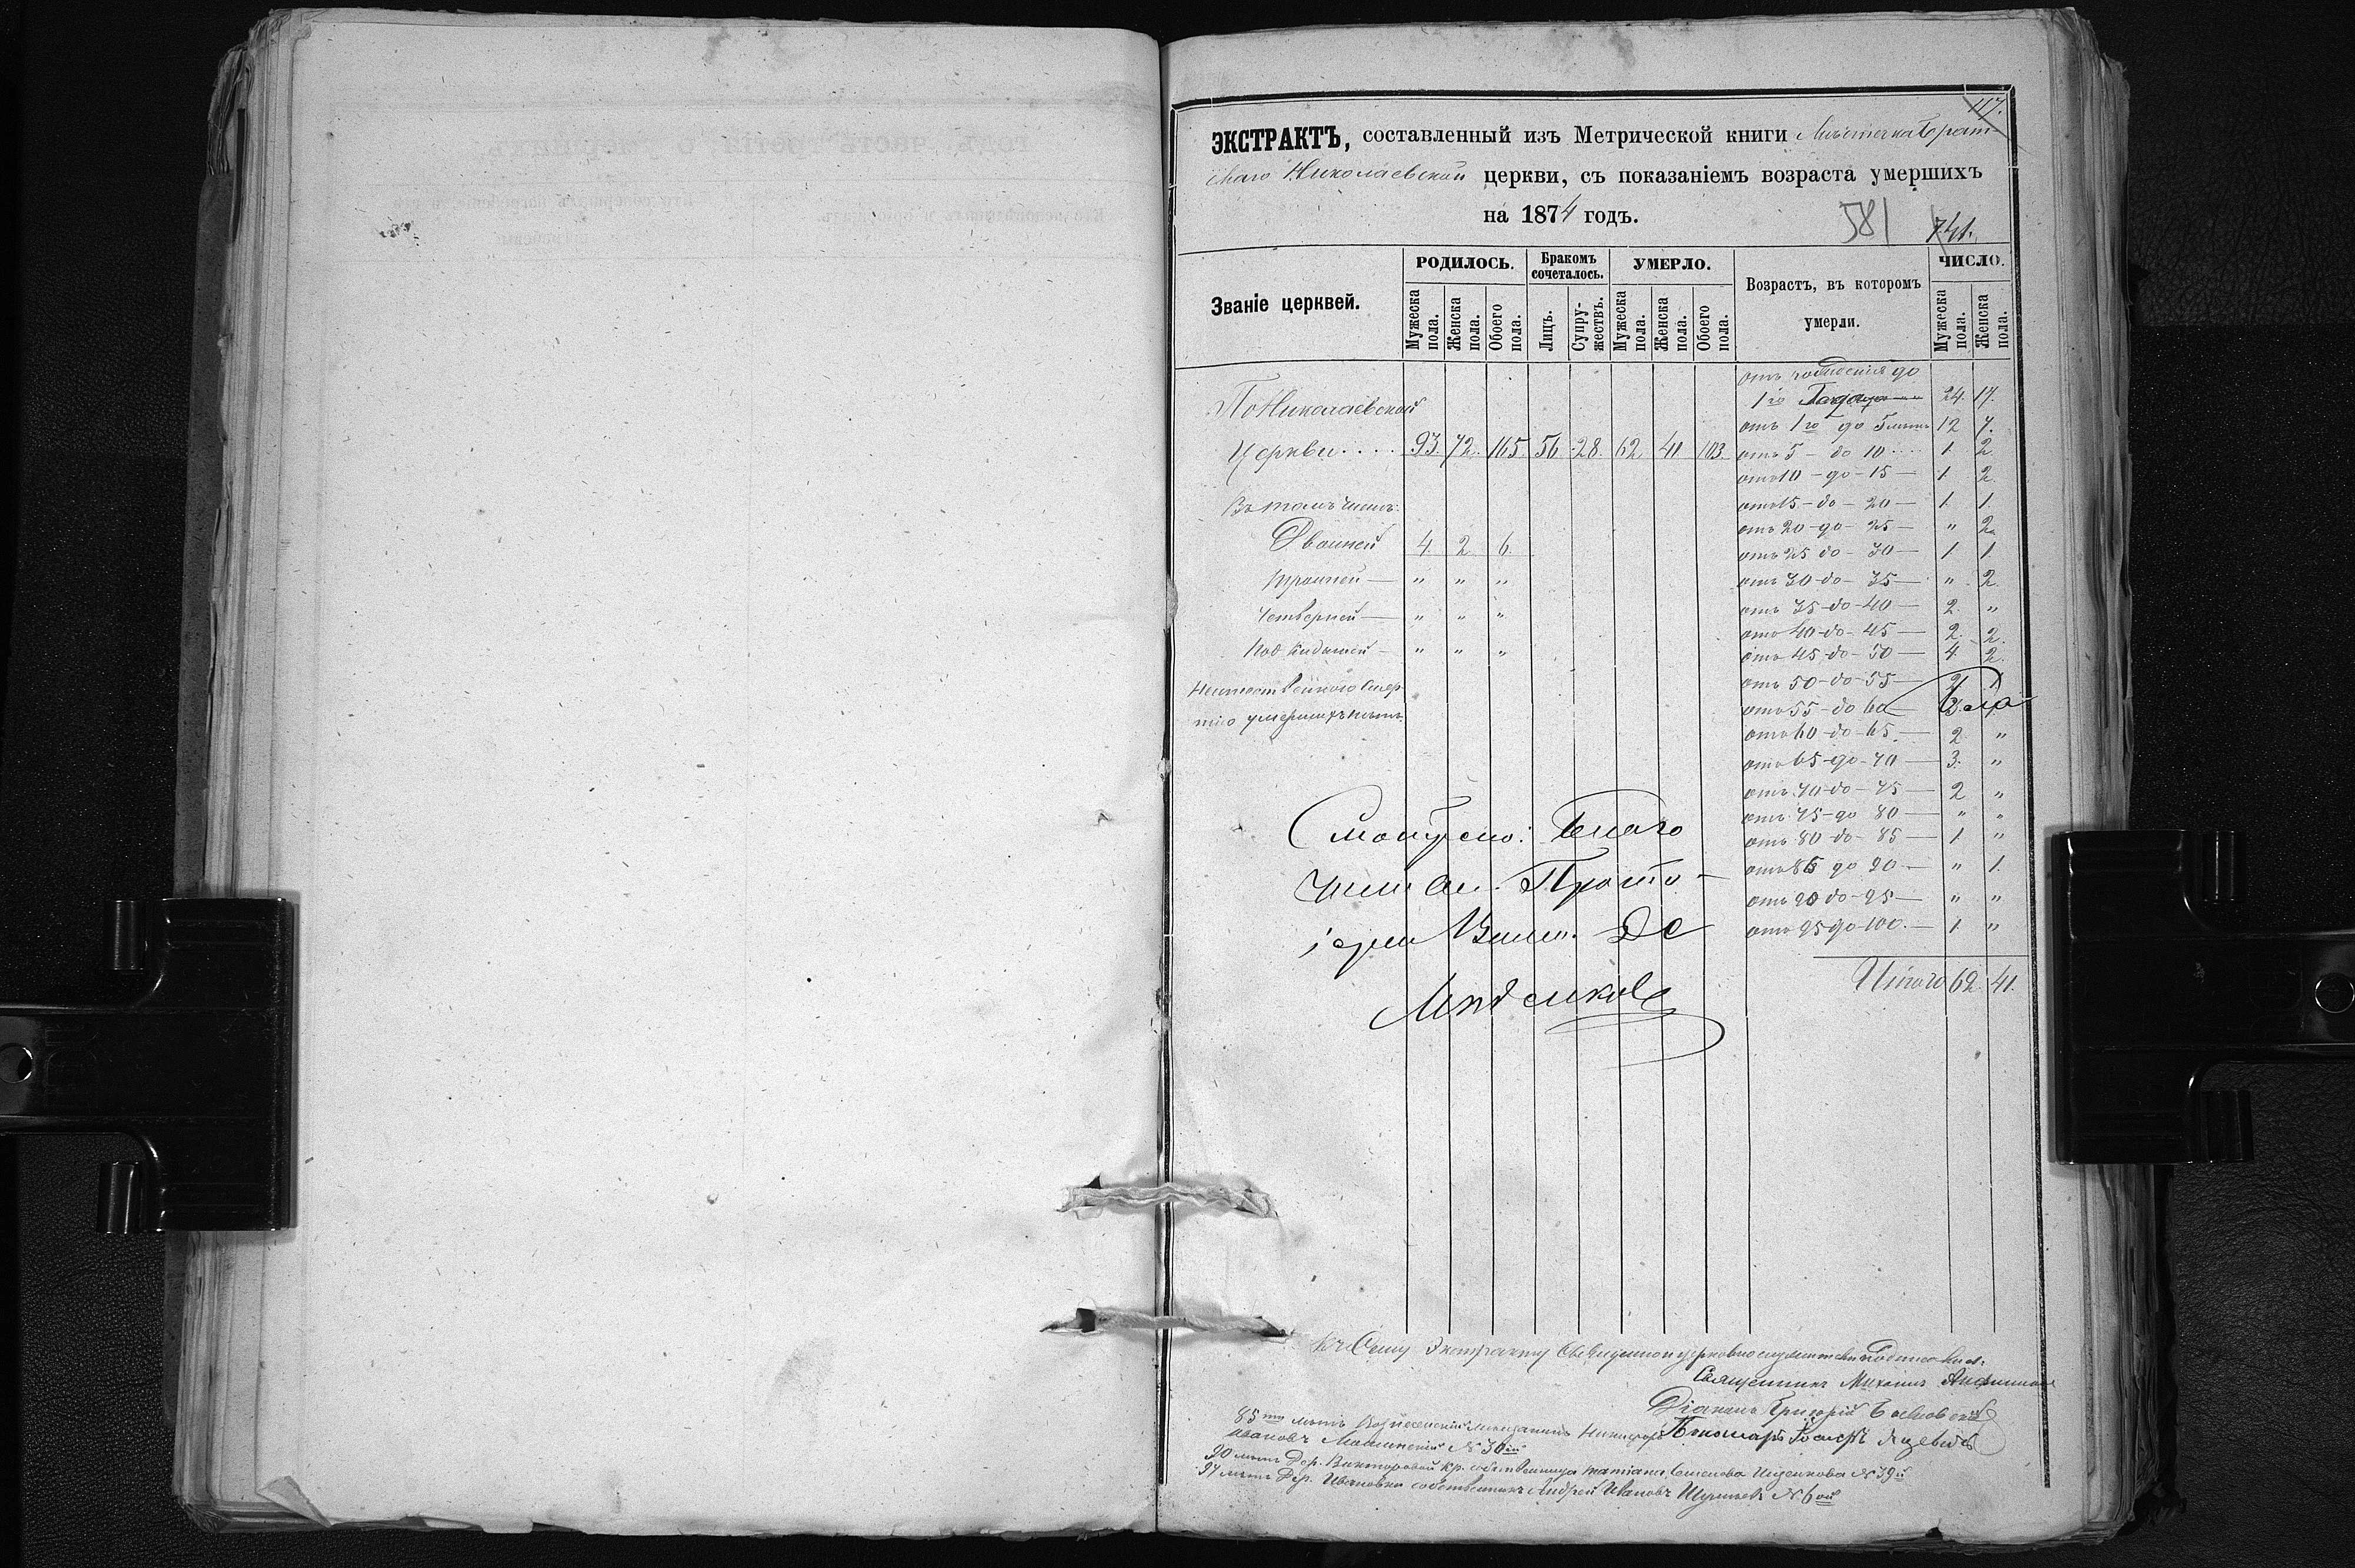 117.
ЭКСТРАКТЪ, составленный изъ Метрической книги Мѣстечка Брат-
скаго Николаевской церкви, съ показаніемъ возраста умершихъ
на 1874 годъ.
581 741.
Званіе церквей. РОДИЛОСЬ. Бракомъ сочеталось. УМЕРЛО. Возрастъ, въ которомъ умерли. ЧИСЛО.
Мужеска пола. Женска пола. Обоего пола. Лицъ. Супру-жествъ. Мужеска пола. Женска пола. Обоего пола. Мужеска пола. Женска пола.
По Николаевской
Церкви.... 93. 72. 165. 56 28. 62 41 103.
Въ томъ числѣ:
Двойней 4. 2. 6.
Тройней — " " "
Четверней — " " "
Подкидышей — " " "
Неестественною смер-
тію умершихъ нѣтъ.
отъ рожденія до
1го Года 24. 17.
отъ 1го до 5 лѣтъ 12 7.
отъ 5 - до 10 .... 1. 2.
отъ 10 - до - 15 — 1. 2.
отъ 15 - до - 20 — 1. 1.
отъ 20 - до - 25 — " 2.
отъ 25 до - 30 — 1 1.
отъ 30 - до - 35 — " 2.
отъ 35 - до - 40 — 2. "
отъ 40 - до - 45 — 2. 2.
отъ 45 - до - 50 — 4 2.
отъ 50 - до - 55 — 2 1.
отъ 55 - до 60 — 2.
отъ 60 - до - 65. — 2 "
отъ 65 - до - 70 — 3. "
отъ 70 - до - 75 — 2 "
отъ 75 - до 80 — " "
отъ 80 - до - 85 — 1 "
отъ 85 до 90 — " 1.
отъ 90 до - 95 — " "
отъ 95 до 100. — 1. "
Итого 62. 41.
Смотрено: Благо
чинный Прото-
іерей
Къ сему Экстракту Священно и церковнослужители подписались:
Священникъ Михаилъ
Діаконъ Григорій
Пономарь
85ти лѣтъ Вознесенскій мѣщанинъ Никифоръ
Ивановъ № 30й
90 лѣтъ Дер. Викторовой кр. собственница № 39й
97 лѣтъ Дер. Ивановки собственникъ Андрей Ивановъ № 6ой